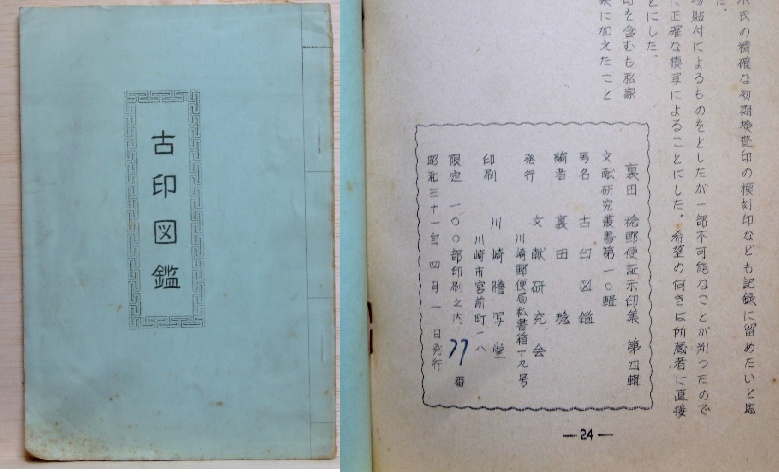 古印図鑑
氏の精確な初期検査印の模刻印なども記録に留めたいと思
貼付によるものをとしたが一部不可能なことが判つたので
正確な模写によることにした。希望の向きは所蔵者に直接
とにした。
を含むも私家
に加えたこと
裏田 稔郵便証示印集 第四輯
文献研究叢書第一〇輯
署名 古印図鑑
編者 裏田 稔
発行 文献研究会
川崎郵便局私書箱十九号
印刷 川崎謄写堂
川崎市宮前町一八
限定 一〇〇部印刷之内 37 番
昭和三十一年四月一日発行
—24—